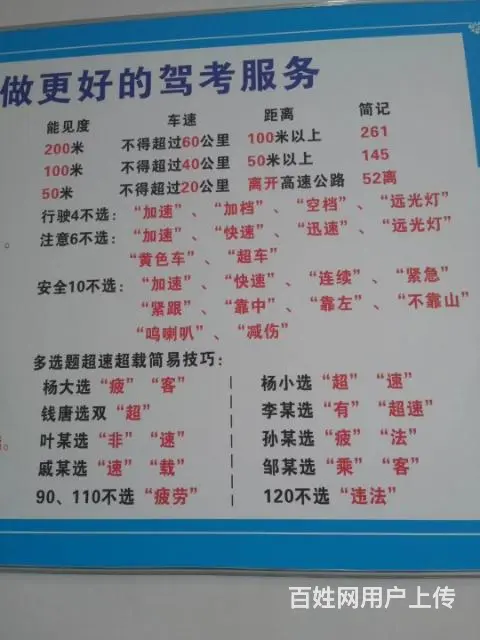 做更好的驾考服务
能见度 车速 距离 简记
200米 不得超过60公里 100米以上 261
100米 不得超过40公里 50米以上 145
50米 不得超过20公里 离开高速公路 52离
行驶4不选：“加速”、“加档”、“空档”、“远光灯”
注意6不选：“加速”、“快速”、“迅速”、“远光灯”
“黄色车”、“超车”
安全10不选：“加速”、“快速”、“连续”、“紧急”
“紧跟”、“靠中”、“靠左”、“不靠山”
“鸣喇叭”、“减伤”
多选题超速超载简易技巧：
杨大选“疲”“客” 杨小选“超”“速”
钱唐选双“超” 李某选“有”“超速”
叶某选“非”“速” 孙某选“疲”“法”
戚某选“速”“载” 邹某选“乘”“客”
90、110不选“疲劳” 120不选“违法”
百姓网用户上传